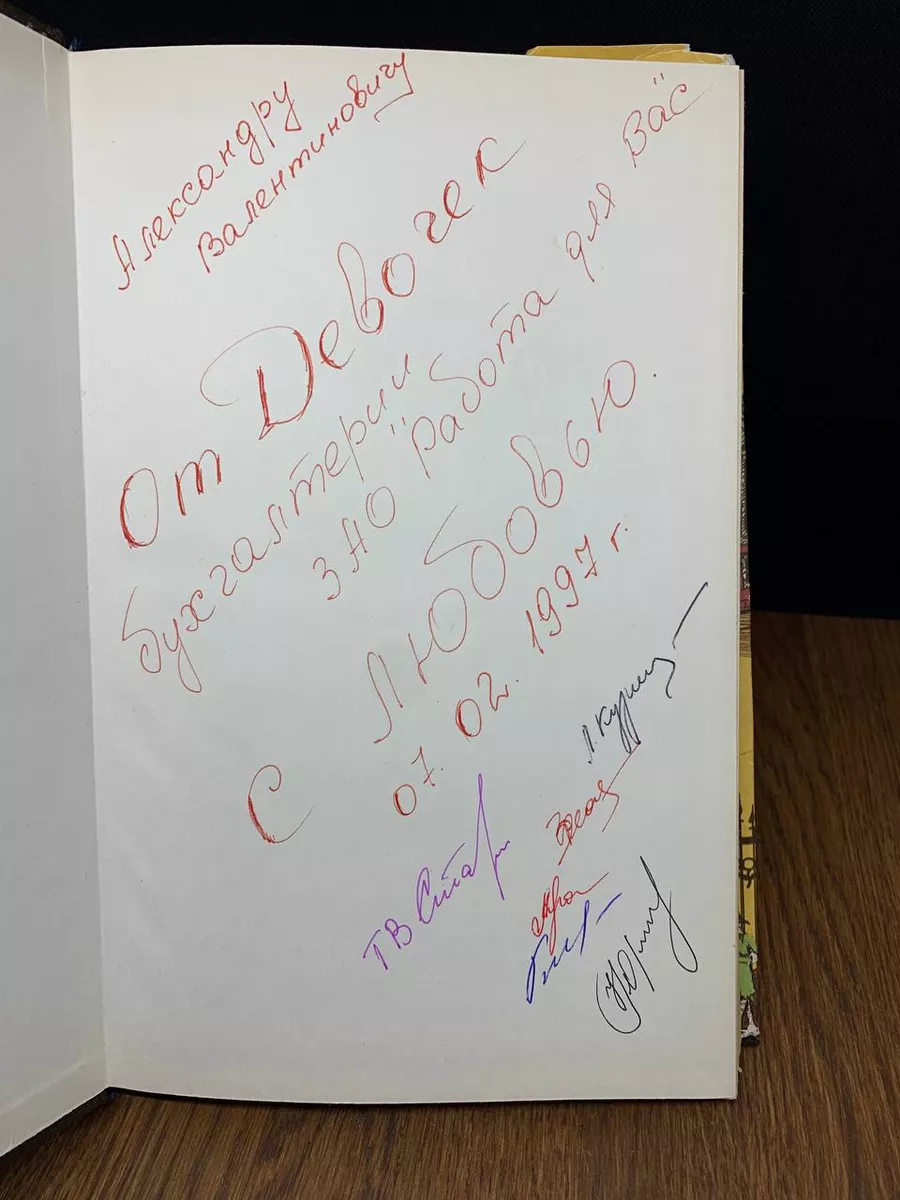 Александру
Валентиновичу
От Девочек
бухгалтерии
ЗАО "Работа для Вас"
С Любовью.
07.02.1997 г.